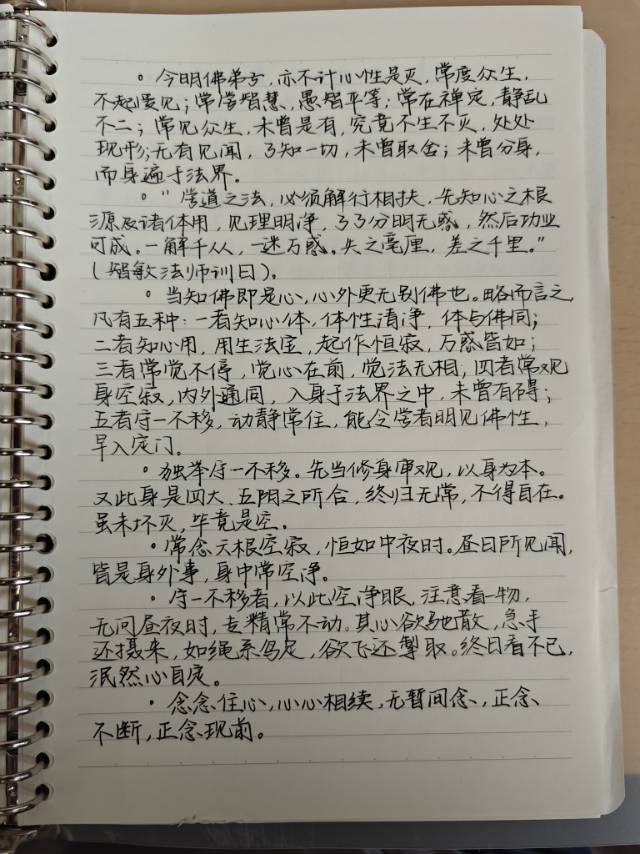 。今明佛弟子,亦不计心性是灭,常度众生,
不起爱见;常学智慧,愚智平等;常在禅定,静乱
不二;常见众生,未曾是有,究竟不生不灭,处处
现形;无有见闻,了知一切,未曾取舍;未曾分身,
而身遍于法界。
。"学道之法,必须解行相扶,先知心之根
源及诸体用,见理明净,了了分明无惑,然后功业
可成。一解千从,一迷万惑。失之毫厘,差之千里。"
(智敏法师训曰)。
。当知佛即是心,心外更无别佛也。略而言之,
凡有五种:一者知心体,体性清净,体与佛同;
二者知心用,用生法宝,起作恒寂,万惑皆如;
三者常觉不停,觉心在前,觉法无相,四者常观
身空寂,内外通同,入身于法界之中,未曾有碍;
五者守一不移,动静常住,能令学者明见佛性,
早入定门。
。独举守一不移。先当修身审观,以身为本。
又此身是四大、五阴之所合,终归无常,不得自在。
虽未坏灭,毕竟是空。
。常念六根空寂,恒如中夜时。昼日所见闻,
皆是身外事,身中常空净。
。守一不移者,以此空净眼,注意看一物,
无问昼夜时,专精常不动。其心欲驰散,急手
还摄来,如绳系鸟足,欲飞还掣取。终日看不已,
泯然心自定。
。念念住心,心心相续,无暂间念,正念
不断,正念现前。